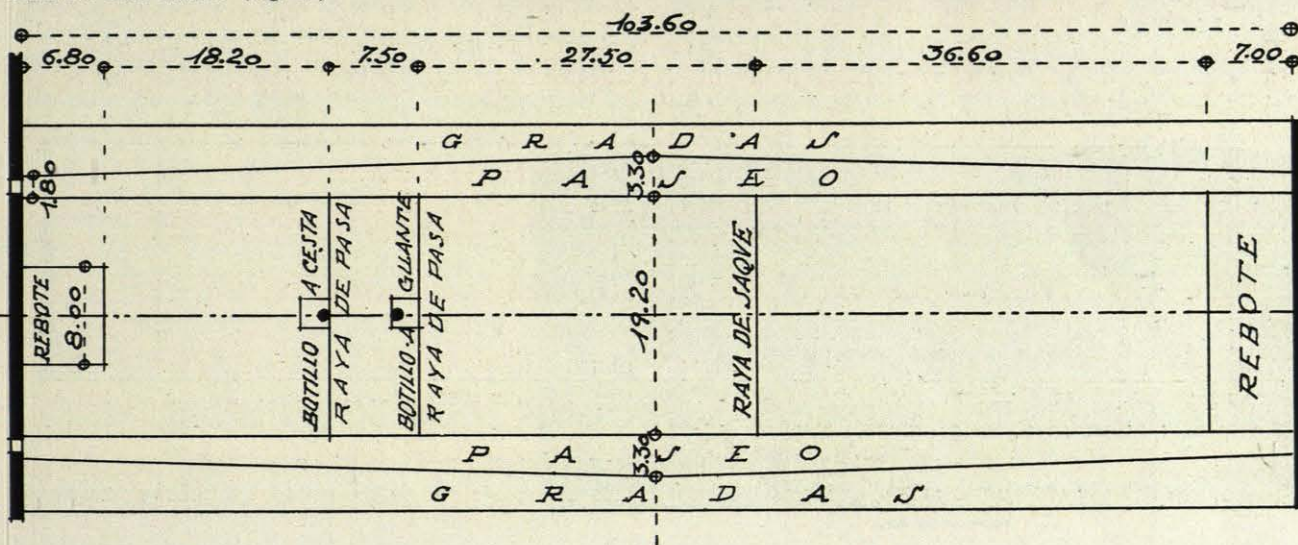 103.60
6.80 18.20 7.50 27.50 36.60 7.00
GRADAS
PASEO
1.80
3.30
REBOTE
8.00
BOTILLO A CESTA
RAYA DE PASA
BOTILLO A GUANTE
RAYA DE PASA
19.20
RAYA DE JAQUE
REBOTE
PASEO
3.30
GRADAS